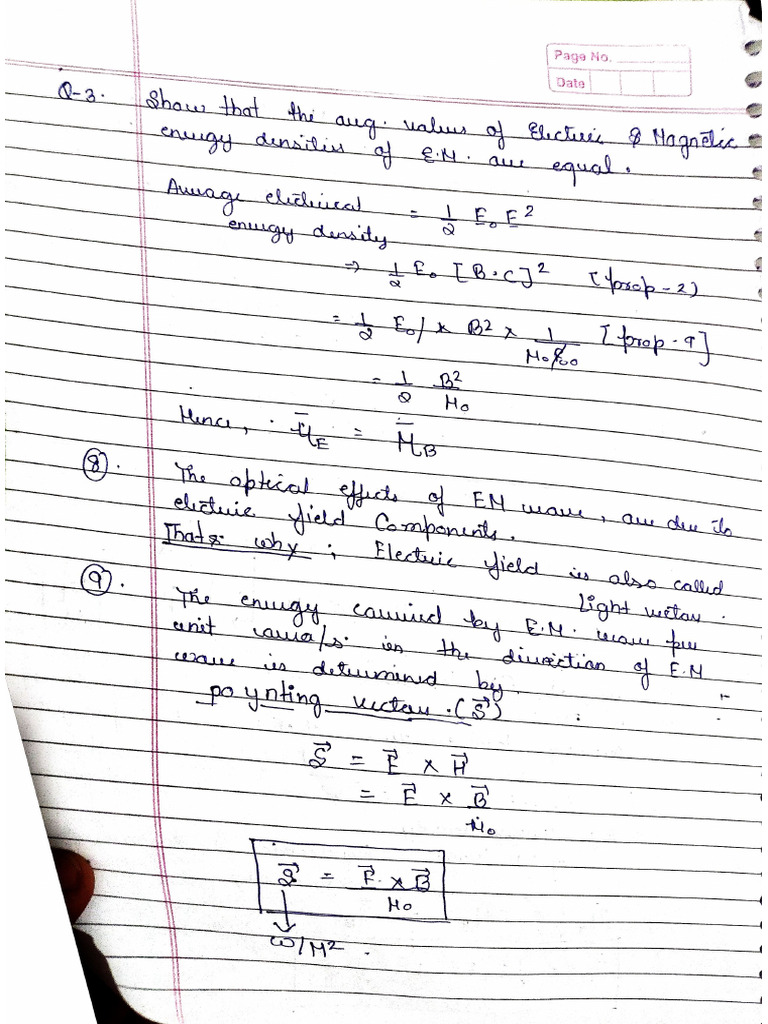 Page No.
Date
Q-3. Show that the avg. values of Electric & Magnetic
energy densities of E.M. are equal.
Average electrical = 1/2 E₀ E²
energy density
⇒ 1/2 E₀ [B·C]² [prop-2]
= 1/2 E₀ × B² × 1/M₀E₀ [prop-9]
= 1/2 B²/M₀
Hence, ū_E = ū_B
(8). The optical effects of EM wave, are due to
electric field Components.
That's why ; Electric field is also called
light vector.
(9). The energy carried by E.M. wave per
unit area/s. in the direction of E.M
wave is determined by
poynting vector. (S⃗)
S⃗ = E⃗ × H⃗
= E⃗ × B⃗/M₀
S⃗ = E⃗ × B⃗/M₀
↓
W/M².